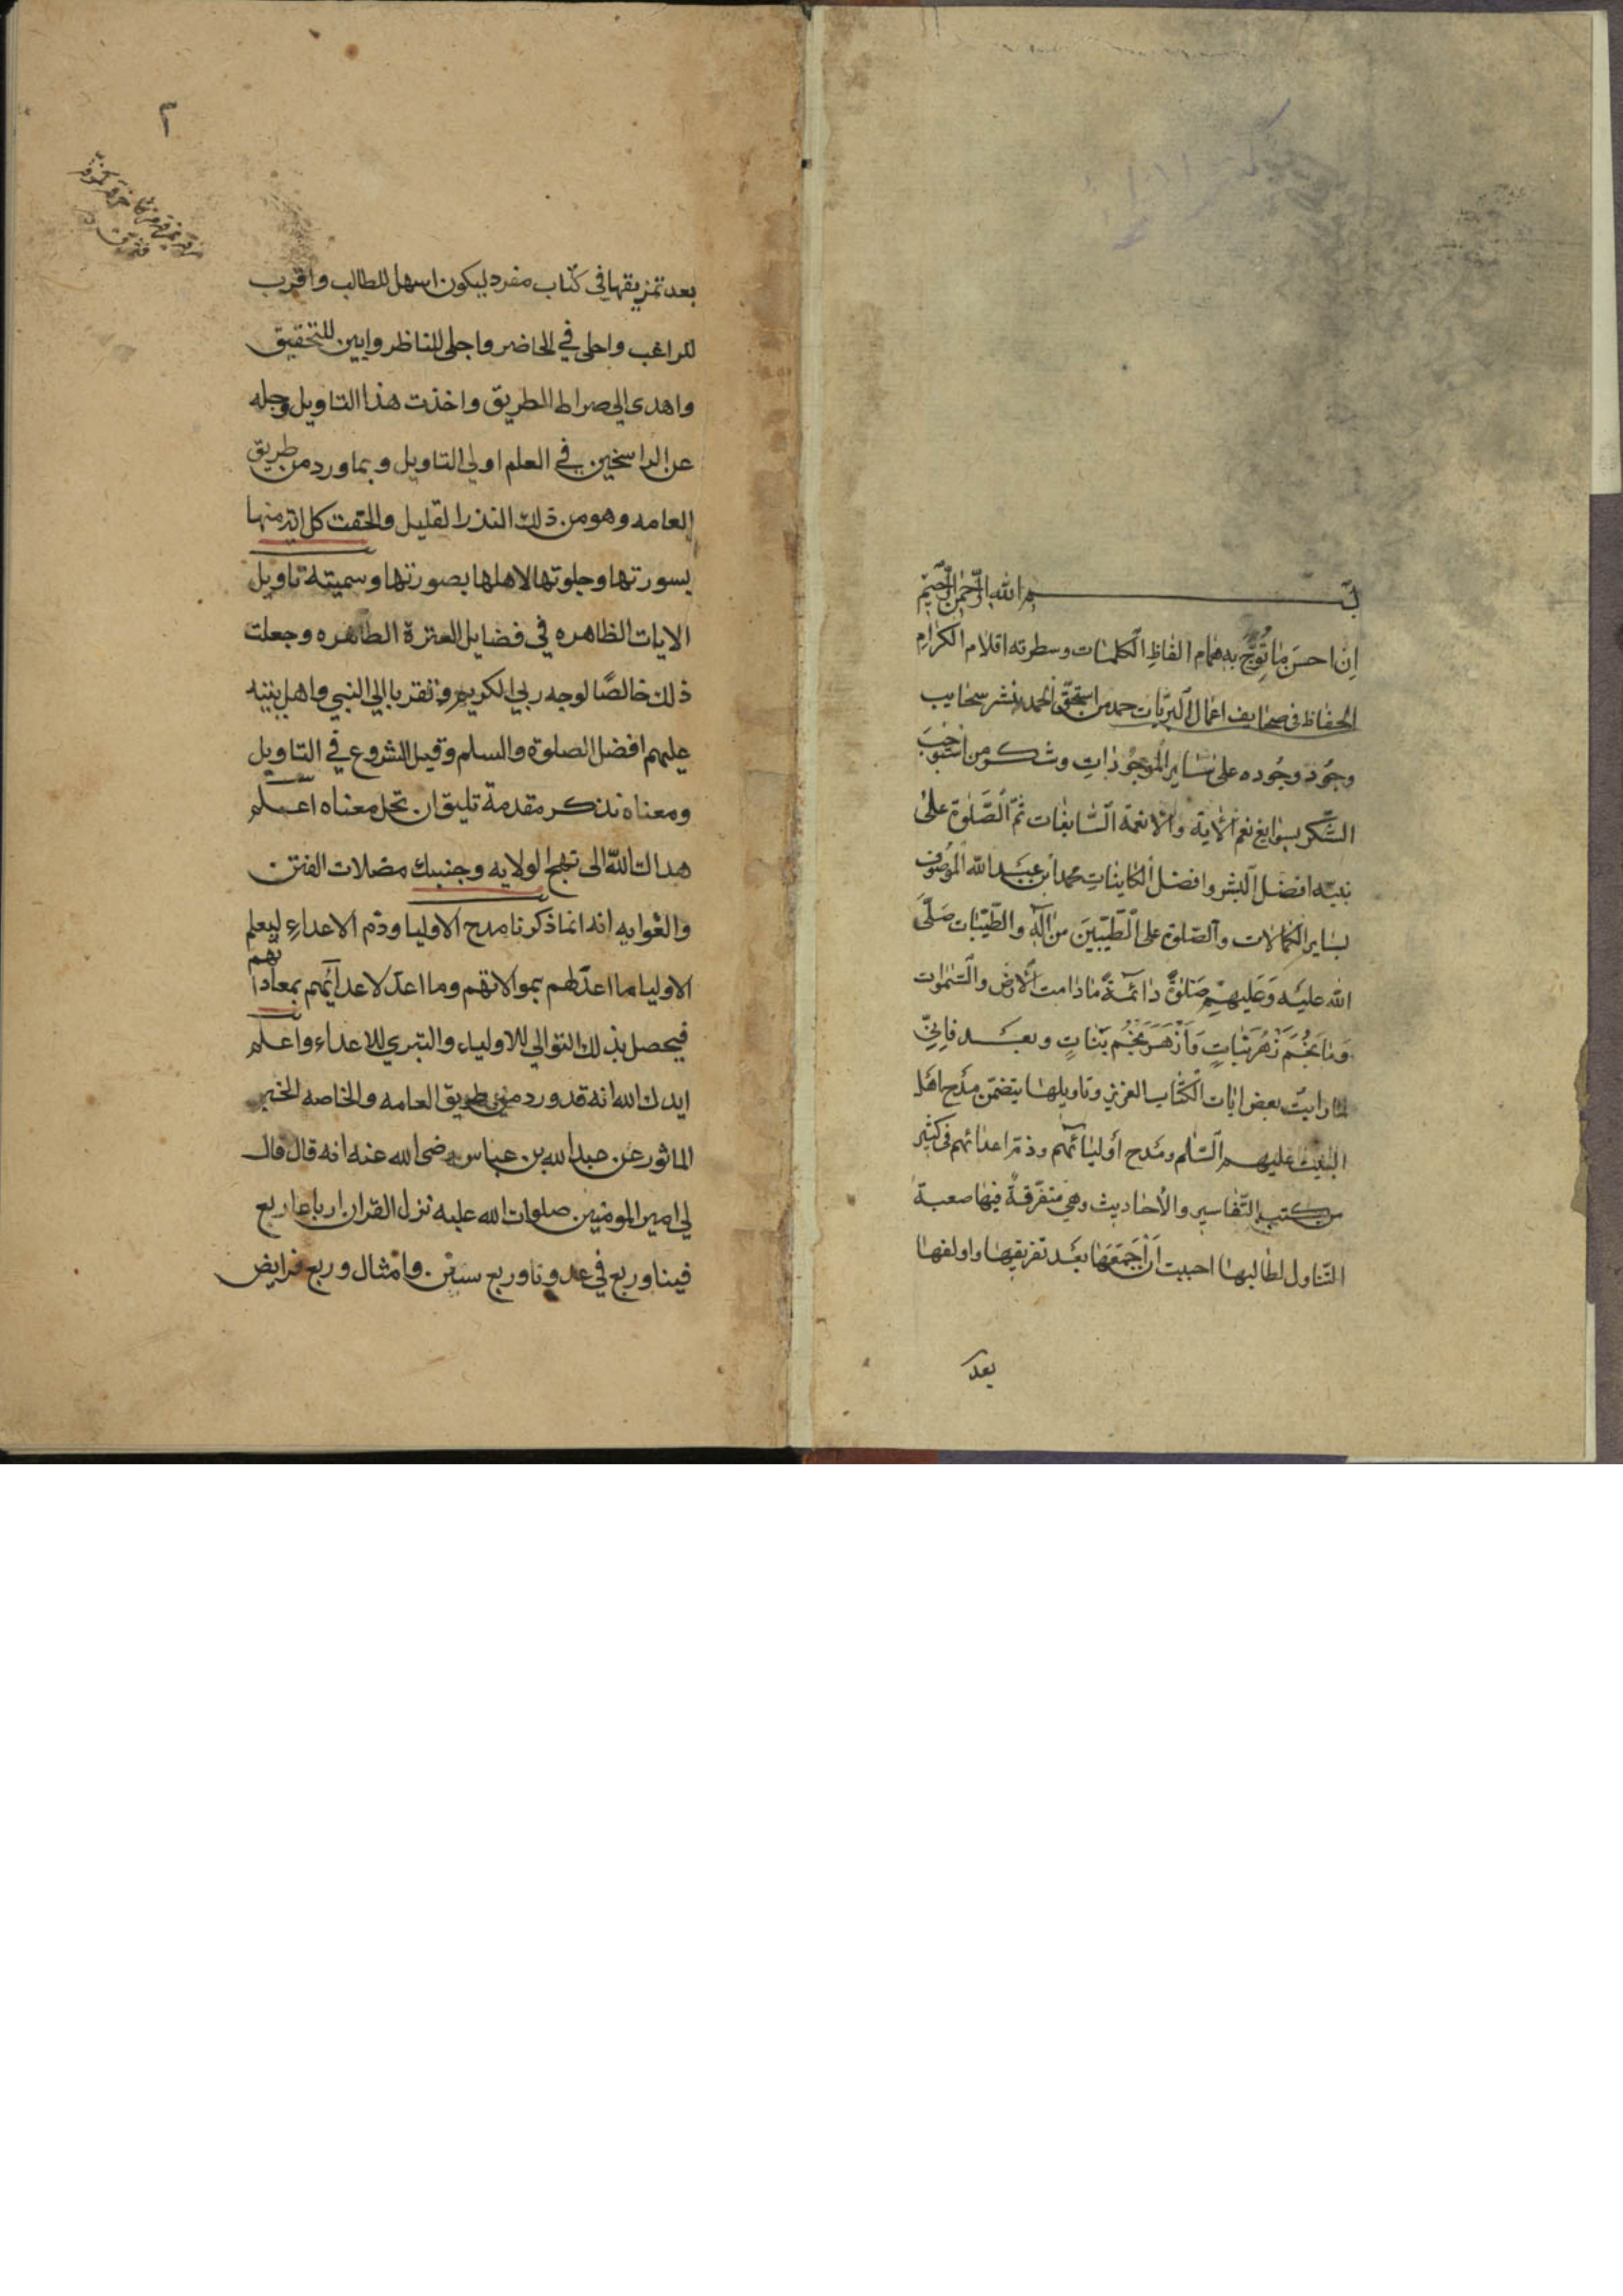 بسم الله الرحمن الرحيم
اِن احسنَ ما تُوِّجَ به هام الفاظِ الكلمات وسطرته اقلام الكرام
الحفاظ في صحايف اعمال البريّات حمد من استحقّ الحمد بنشر سحايب
وجُود وجُوده على ساير الموجُوداتِ وشكر من استوجبَ
الشّكر بسوابغ نعم الأية والانعمة السّابغات ثمّ الصَّلوة علىٰ
نبيه افضل البشر وافضل الكاينات محمد ابن عبد الله الموصُوف
بساير الكمالات والصّلوة على الطّيّبينَ من اله والطّيّبات صَلَّى
الله عليه وَعليهم صَلوةً دائمةً ما دامت الأرض والسّموات
وَما نجُمَ زهر نباتٍ وَازهَرَ نجُم بَناتٍ وبعد فانّي
لما رايت بعض ايات الكتاب العزيز وتاويلها يتضمّن مدح اهل
البيت عليهم السّلم ومَدح أوليائهم وذمّ اعدائهم في كثير
من كتب التّفاسير والأحاديث وهي متفرّقةً فيها صعبة
التّناول لطالبها احببت اَن اَجمَعَها بعَد تفريقها واولفها
بعد
٢
بعد تمزيقها في كتاب مفرد ليكون اسهل للطالب واقرب
للراغب واحلى في الخاضر واجلى للناظر وابين للتحقيق
واهدى الى صراط الطريق واخذت هذا التاويل وجله
عن الراسخين في العلم اولي التاويل وبما ورد من طريق
العامه وهو من ذلك النذر القليل والحقت كل اية منها
بسورتها وجلوتها لاهلها بصورتها وسميته تاويل
الايات الظاهره في فضايل العترة الطاهره وجعلت
ذلك خالصًا لوجه ربي الكريم وتقربا الى النبي واهل بيته
عليهم افضل الصلوة والسلم وقبل الشروع في التاويل
ومعناه نذكر مقدمة تليق ان تحل معناه اعلم
هداك الله الى نهج الولايه وجنبك مضلات الفتن
والغوايه انه انما ذكرنا مدح الاوليا وذم الاعداءِ ليعلم
الاوليا ما اعدّ لهم بموالاتهم وما اعدّ لاعدائهم بمعاداتهم
فيحصل بذلك التوالي للاولياء والتبري للاعداء واعلم
ايدك الله انه قد ورد من طريق العامه والخاصه الخبر
الماثور عن عبد الله بن عباس رضى الله عنه انه قال قال
لي امير المومنين صلوات الله عليه نزل القران ارباعا ربع
فينا وربع في عدونا وربع سنن وامثال وربع فرايض